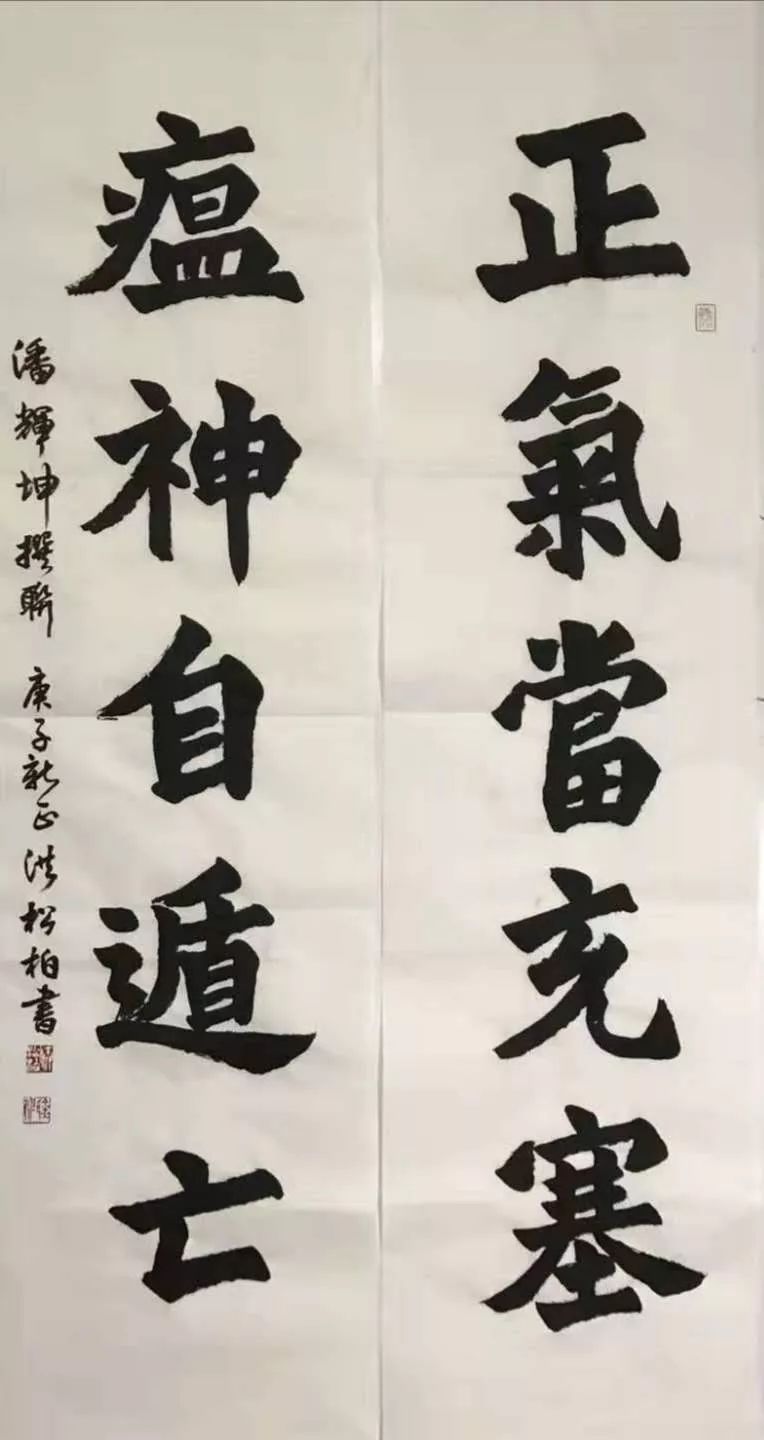 正氣當充塞
瘟神自遁亡
潘輝坤撰聯 庚子新正洪松柏書